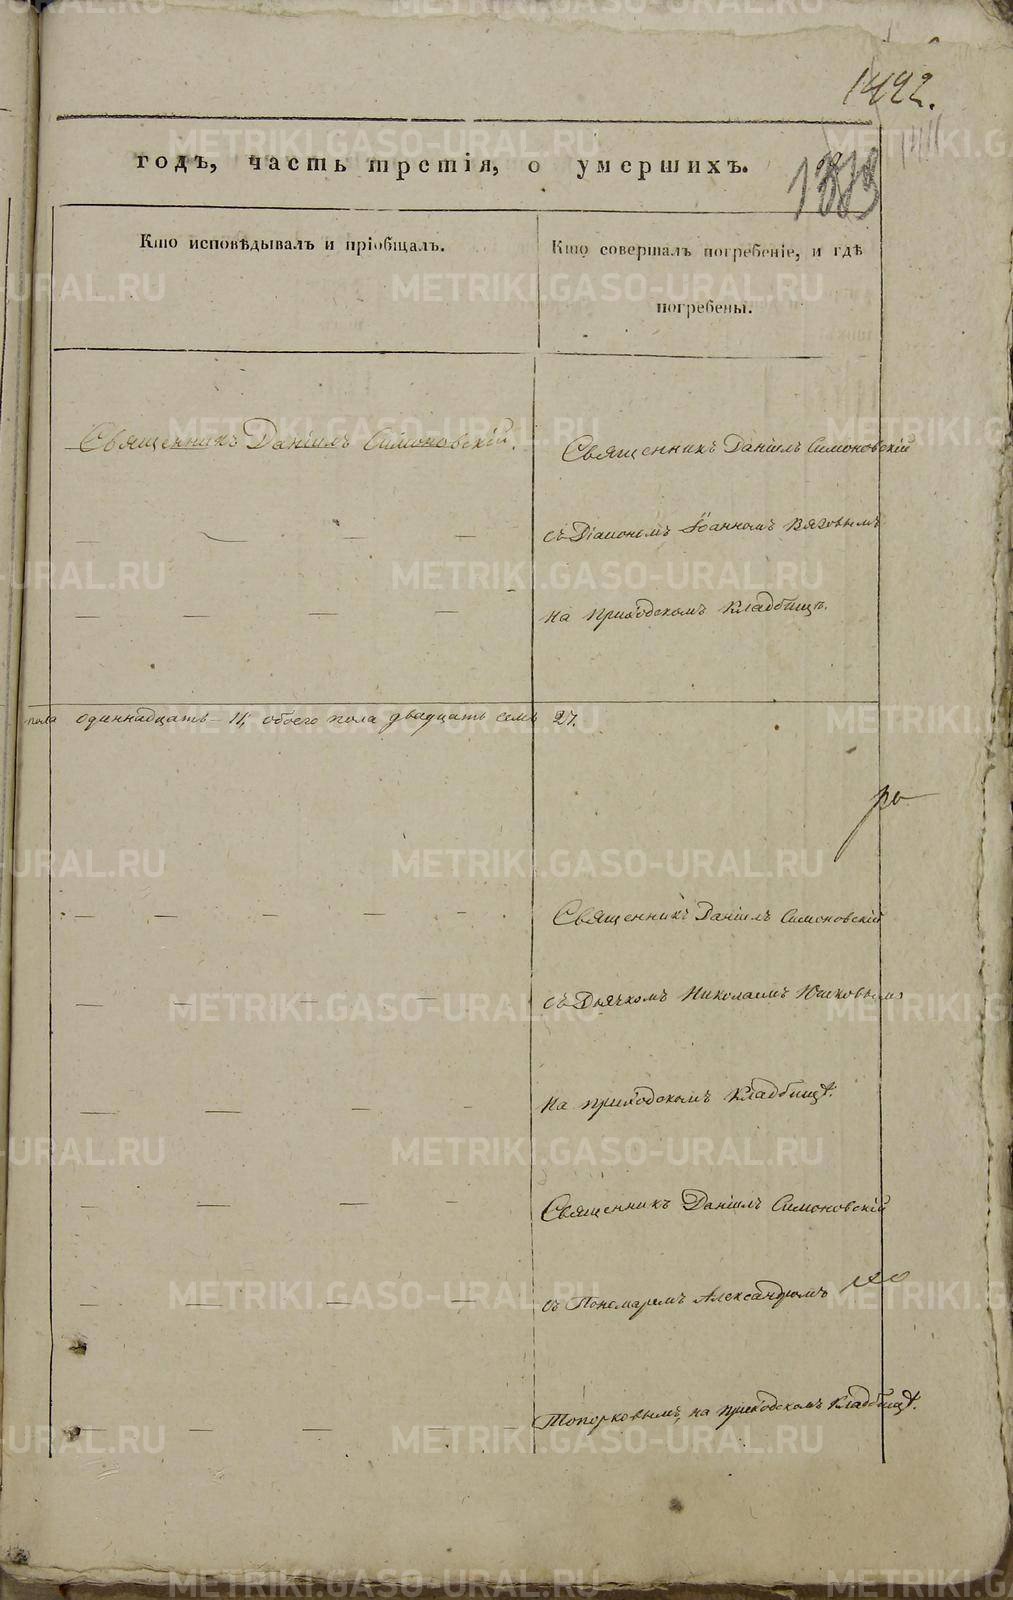 1492.
годъ, часть третія, о умершихъ.
Кто исповѣдывалъ и пріобщалъ.
Кто совершалъ погребеніе, и гдѣ
погребены.
Священникъ Даніилъ Симоновскій.
Священникъ Даніилъ Симоновскій
съ Діакономъ Іоанномъ Вяговымъ
на приходскомъ Кладбищѣ.
пола одиннадцать – 11, обоего пола двадцать семь 27.
Священникъ Даніилъ Симоновскій
съ Дьячкомъ Николаемъ
на приходскомъ Кладбищѣ.
Священникъ Даніилъ Симоновскій
съ Пономаремъ Александромъ
Топорковымъ, на приходскомъ Кладбищѣ.
METRIKI.GASO-URAL.RU